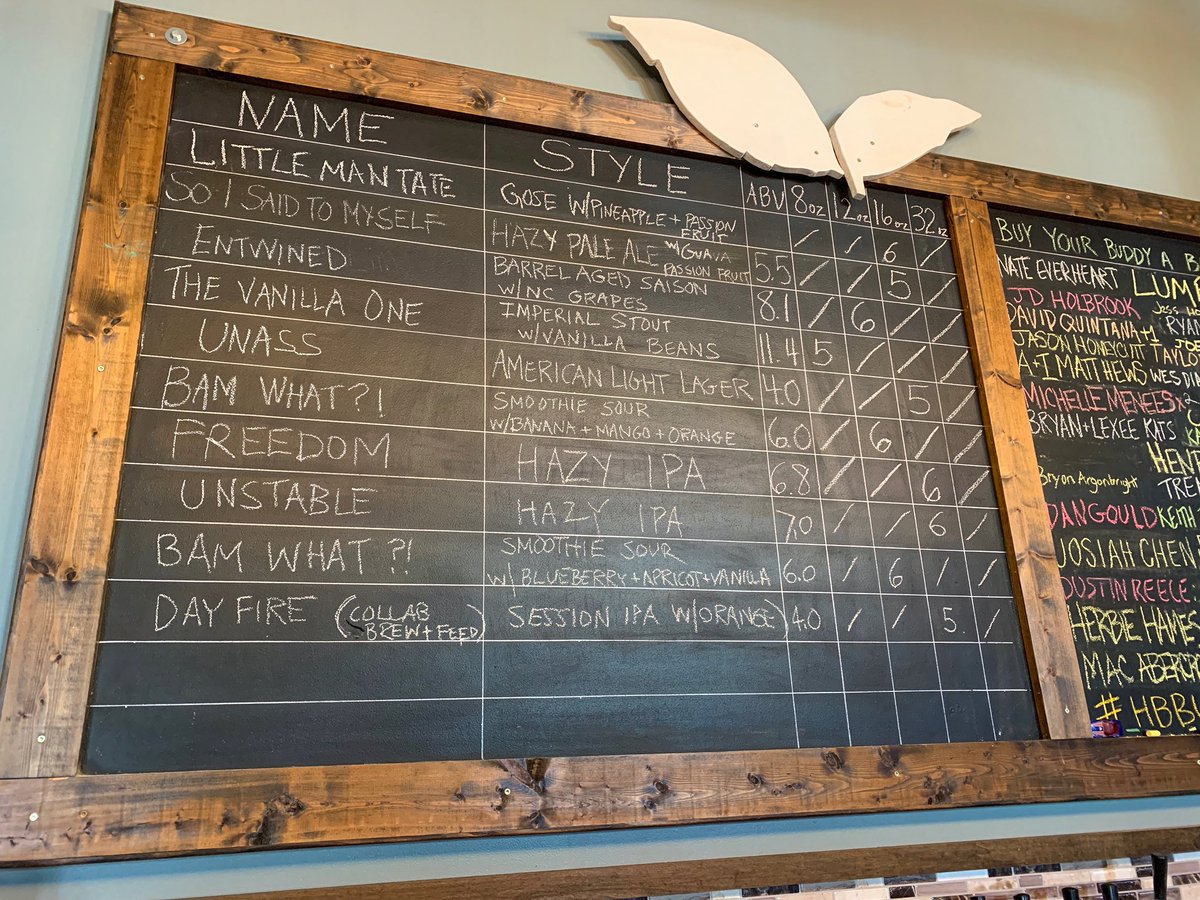 NAME STYLE ABV 8oz 12oz 16oz 32oz
LITTLE MAN TATE GOSE W/PINEAPPLE + PASSION FRUIT / / 6 /
SO I SAID TO MYSELF HAZY PALE ALE W/GUAVA PASSION FRUIT 5.5 / / 5 /
ENTWINED BARREL AGED SAISON W/NC GRAPES 8.1 / 6 / /
THE VANILLA ONE IMPERIAL STOUT W/VANILLA BEANS 11.4 5 / / /
UNASS AMERICAN LIGHT LAGER 4.0 / / 5 /
BAM WHAT?! SMOOTHIE SOUR W/BANANA + MANGO + ORANGE 6.0 / 6 / /
FREEDOM HAZY IPA 6.8 / / 6 /
UNSTABLE HAZY IPA 7.0 / / 6 /
BAM WHAT?! SMOOTHIE SOUR W/ BLUEBERRY + APRICOT + VANILLA 6.0 / 6 / /
DAY FIRE (COLLAB BREW + FEED) SESSION IPA W/ORANGE) 4.0 / / 5. /
BUY YOUR BUDDY A
NATE EVERHEART
JD HOLBROOK
DAVID QUINTANA +1
JASON HONEYCUTT
A+J MATTHEWS
MICHELLE MENEES x2
BRYAN + LEXEE KATS
Bryon Argonbright
DAN GOULD KEITH
JOSIAH CHEN
DUSTIN REECE
HERBIE HAMES
MAC